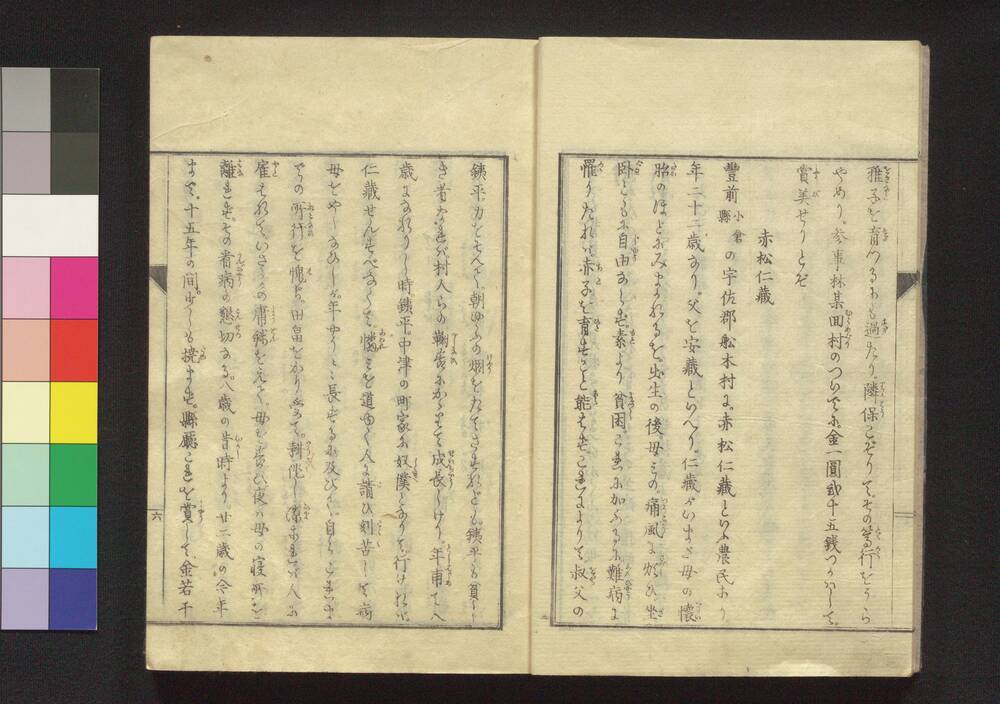 稚子を育つるにも過たり。隣保こぞりて其の篤行をうら
やめり。参事林某回村のついでに。金一圓弐十五銭つかはして。
賞美せりとぞ
赤松仁藏
豊前小倉縣の宇佐郡舩木村に。赤松仁藏といふ農民あり
年二十二歳なり。父を安藏といへり。仁藏がいまだ母の懐
胎のほどにみまかれるを。出生の後母もの痛風を煩ひ。坐
臥ともに自由ならず。素より貧困。これに加ふるに難病に
罹りたれば。赤子を育すこと能はず。これによりて叔父の
銕平力をそへて。朝ゆふの烟をたてさすれども。銕平も貧し
き者なれば。村人らの鞠育にかかりて成長しけり。年甫て八
歳になれりし時。銕平中津の町家に奴僕となりて行ければ。
仁藏せんすべなくて。憐みを道ゆく人に請ひ。刻苦して病
母をやしなひしが。年やうやく長ずるに及びて。自らこれま
での所行を愧ぢ。田畠をかり受て。耕作し
雇はれて。いささかの庸錢をえて。母に
離れず。その看病の懇切なる。八歳の昔時より。廿二歳の今年
まで。十五年の間。少しも撓まず。縣廳これを賞して。金若干
六